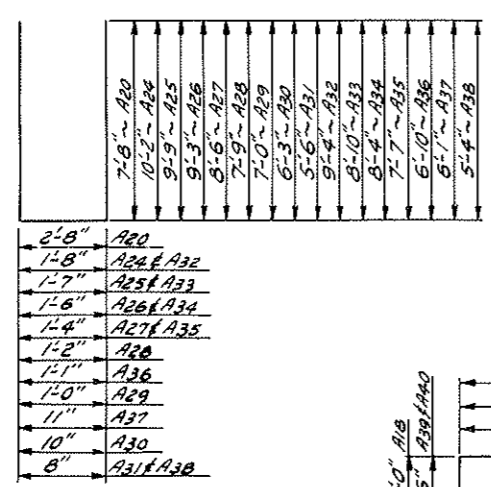 7'-8" ~ A20
10'-2" ~ A24
9'-9" ~ A25
9'-3" ~ A26
8'-6" ~ A27
7'-9" ~ A28
7'-0" ~ A29
6'-3" ~ A30
5'-6" ~ A31
9'-4" ~ A32
8'-10" ~ A33
8'-4" ~ A34
7'-7" ~ A35
6'-10" ~ A36
6'-1" ~ A37
5'-4" ~ A38
2'-8" A20
1'-8" A24 & A32
1'-7" A25 & A33
1'-6" A26 & A34
1'-4" A27 & A35
1'-2" A28
1'-1" A36
1'-0" A29
11" A37
10" A30
8" A31 & A38
A18
A39 & A40